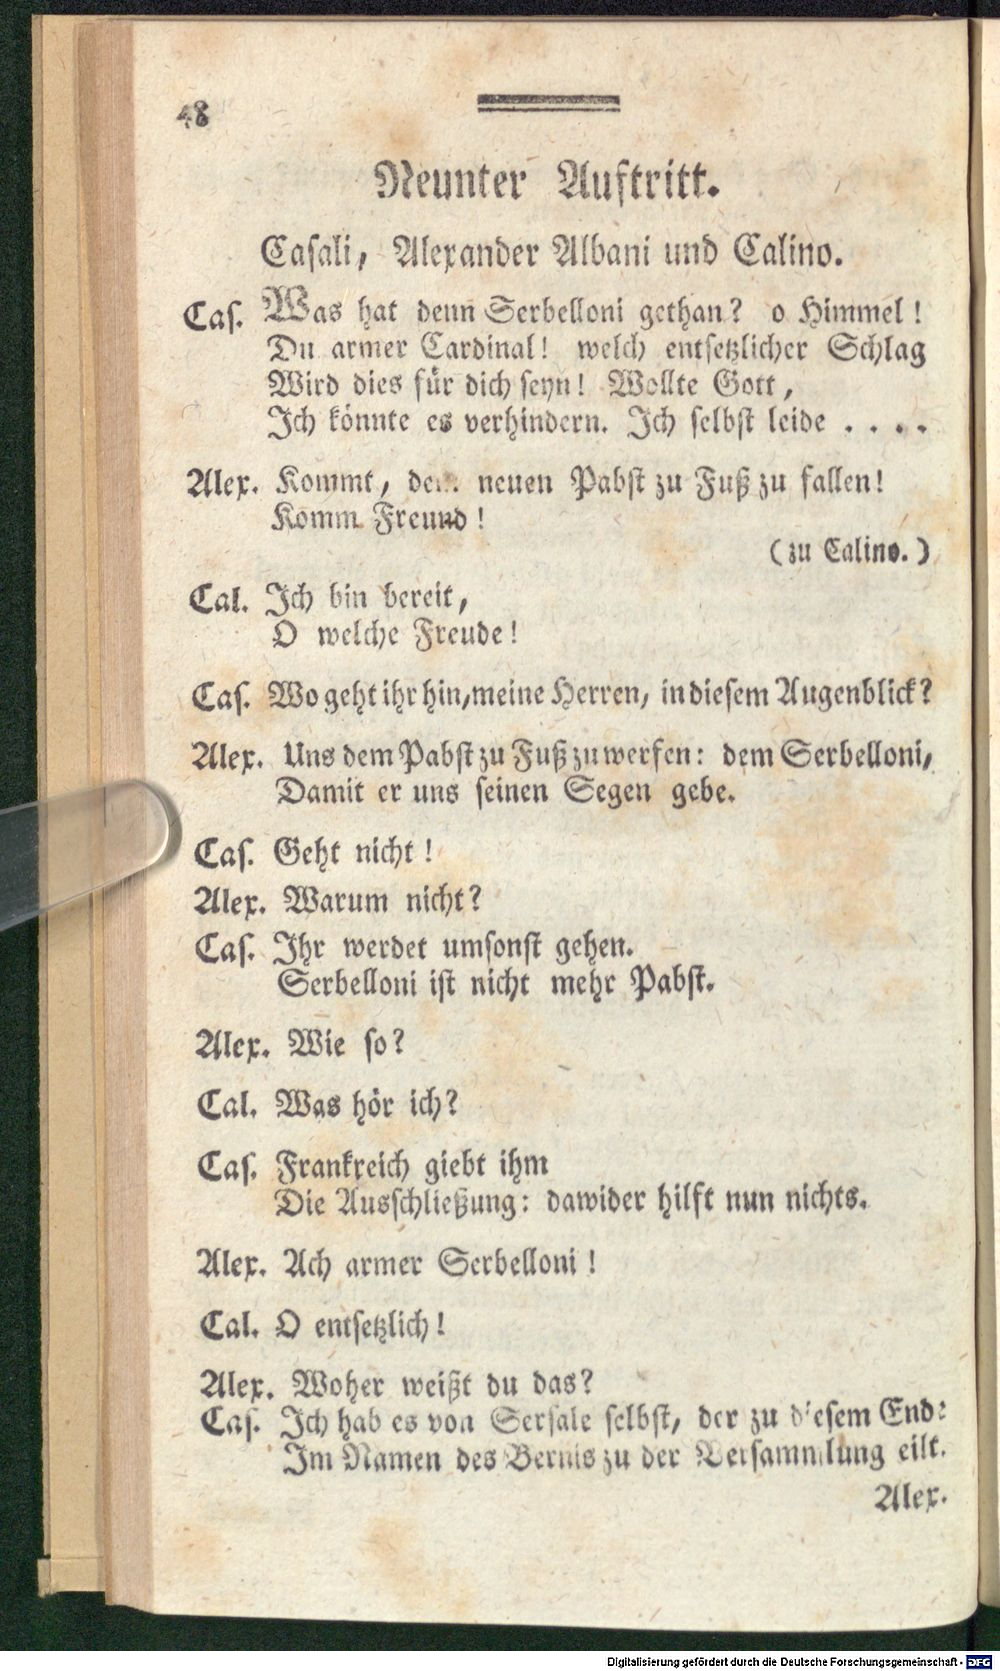 48
Neunter Auftritt.
Casali, Alexander Albani und Calino.
Cas. Was hat denn Serbelloni gethan? o Himmel!
Du armer Cardinal! welch entsetzlicher Schlag
Wird dies für dich seyn! Wollte Gott,
Ich könnte es verhindern. Ich selbst leide . . . .
Alex. Kommt, dem neuen Pabst zu Fuß zu fallen!
Komm Freund!
(zu Calino.)
Cal. Ich bin bereit,
O welche Freude!
Cas. Wo geht ihr hin, meine Herren, in diesem Augenblick?
Alex. Uns dem Pabst zu Fuß zu werfen: dem Serbelloni,
Damit er uns seinen Segen gebe.
Cas. Geht nicht!
Alex. Warum nicht?
Cas. Ihr werdet umsonst gehen.
Serbelloni ist nicht mehr Pabst.
Alex. Wie so?
Cal. Was hör ich?
Cas. Frankreich giebt ihm
Die Ausschließung: dawider hilft nun nichts.
Alex. Ach armer Serbelloni!
Cal. O entsetzlich!
Alex. Woher weißt du das?
Cas. Ich hab es von Sersale selbst, der zu diesem Ende
Im Namen des Bernis zu der Versammlung eilt.
Alex.
Digitalisierung gefördert durch die Deutsche Forschungsgemeinschaft - DFG